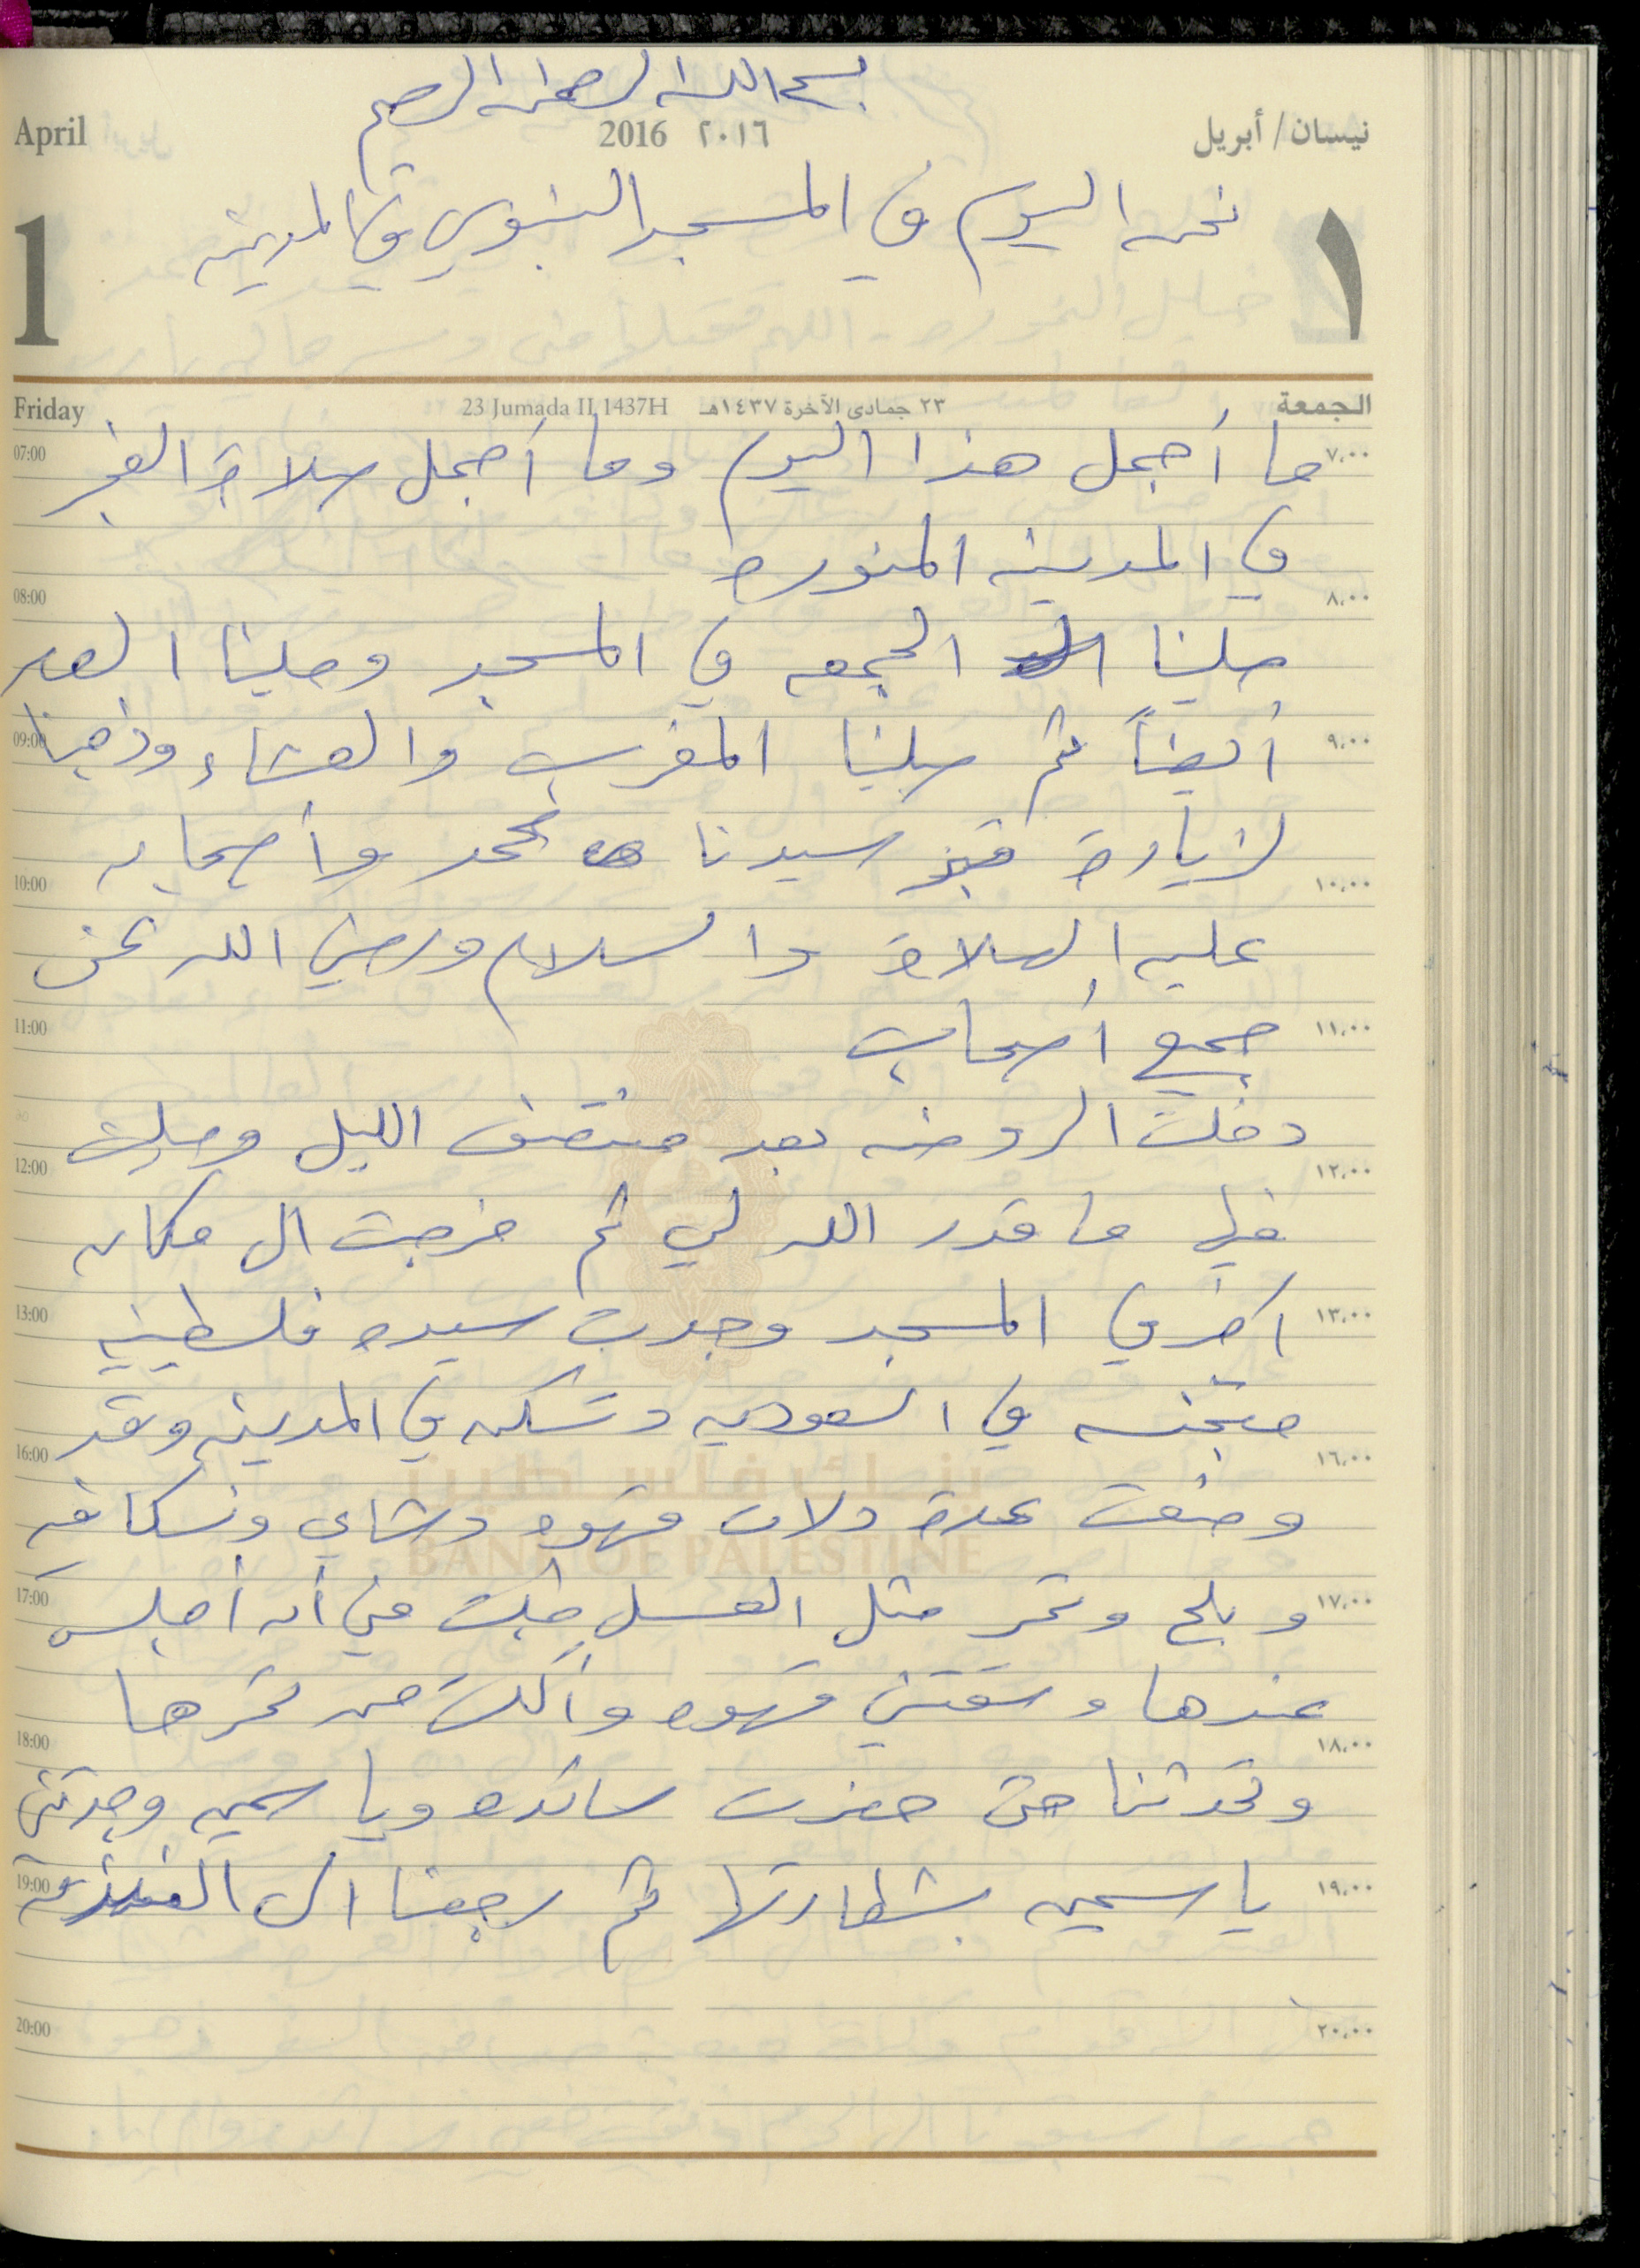 بسم الله الرحمن الرحيم
April 2016 ٢٠١٦ نيسان / أبريل
نحن اليوم في المسجد النبوي في المدينه
1 ١
Friday 23 Jumada II 1437H ٢٣ جمادى الآخرة ١٤٣٧هـ الجمعة
07:00 ما أجمل هذا اليوم وما أجمل صلاة الفجر ٧,٠٠
في المدينه المنوره
08:00 ٨,٠٠
صلينا الجمعه في المسجد وصلينا العصر
09:00 أيضاً ثم صلينا المغرب والعشاء وذهبنا ٩,٠٠
لزيارة قبر سيدنا محمد وأصحابه
10:00 ١٠,٠٠
عليه الصلاة والسلام ورضي الله عن
11:00 جميع أصحابه ١١,٠٠
دخلت الروضه بعد منتصف الليل وصليت
12:00 ١٢,٠٠
فيها ما قدر الله لي ثم خرجت الى مكان
13:00 اخر في المسجد وجدت سيده فلسطينيه ١٣,٠٠
متجنسه في السعوديه وتسكن في المدينه وقد
16:00 ١٦,٠٠
وضعت عدة دلات قهوه وشاي ونسكافه
بنك فلسطين
BANK OF PALESTINE
17:00 وبلح وتمر مثل العسل طلبت مني أن أجلس ١٧,٠٠
عندها وسقتني قهوه وأكلت من تمرها
18:00 ١٨,٠٠
وتحدثنا حتى حضرت سائده وياسمين وجدتني
19:00 ياسمين بشطارتها ثم رجعنا الى الفندق ١٩,٠٠
20:00 ٢٠,٠٠